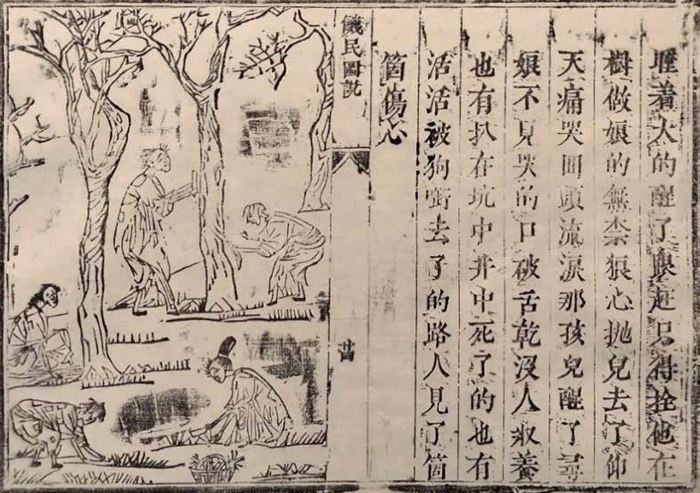 睡着大的醒了赶只得拴他在
樹做娘的無柰狠心抛兒去了仰
天痛哭回頭流淚那孩兒醒了尋
娘不見哭的口破舌乾沒人收養
也有扒在坑中井中死了的也有
活活被狗啣去了的路人見了箇
箇傷心
饑民圖説